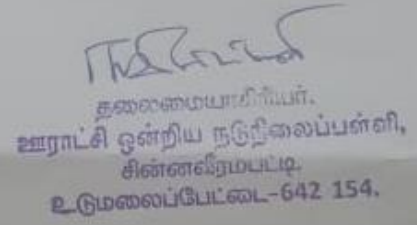 தலைமையாசிரியர்.
ஊராட்சி ஒன்றிய நடுநிலைப்பள்ளி,
சின்னவீரம்பட்டி.
உடுமலைப்பேட்டை-642 154.